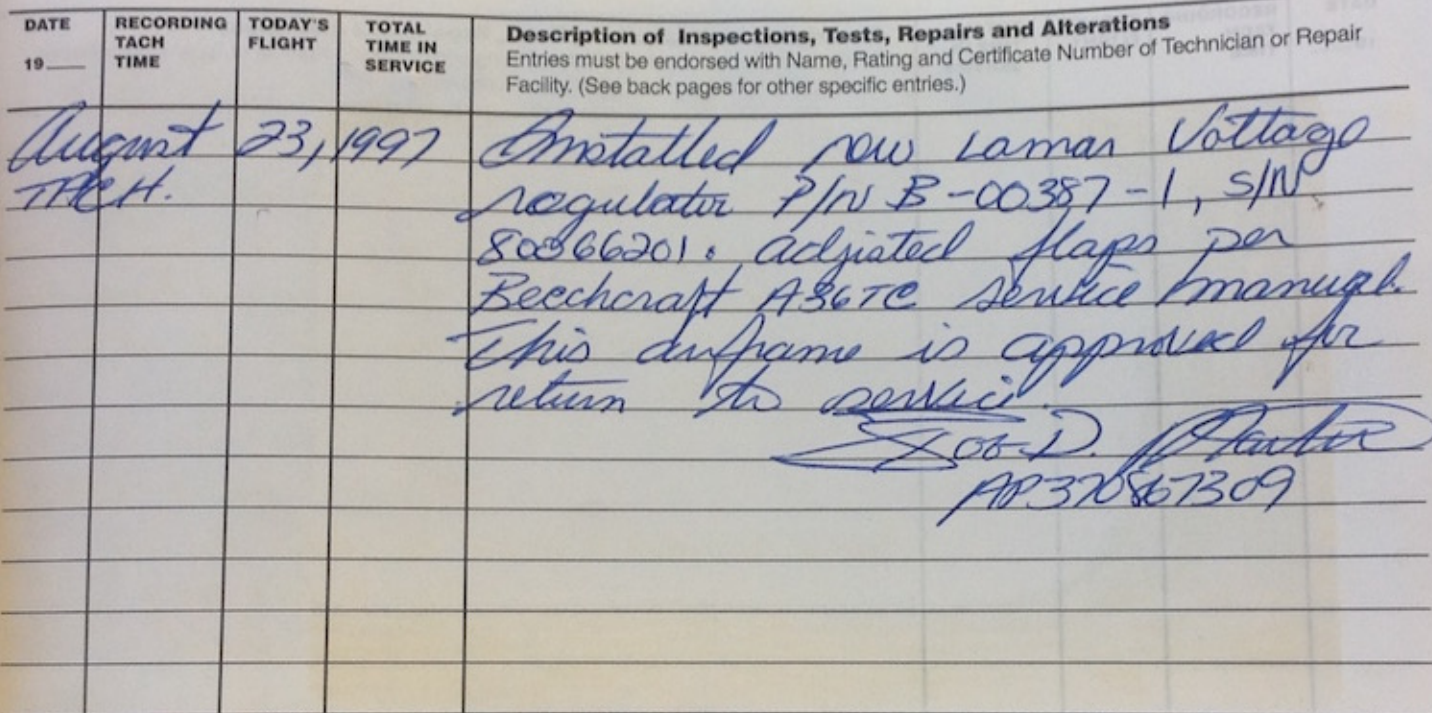 DATE
19
RECORDING
TACH
TIME
TODAY'S
FLIGHT
TOTAL
TIME IN
SERVICE
Description of Inspections, Tests, Repairs and Alterations
Entries must be endorsed with Name, Rating and Certificate Number of Technician or Repair
Facility. (See back pages for other specific entries.)
August 23, 1997 Installed new Lamar Voltage
TACH. regulator P/N B-00387-1, S/N
80866201. adjusted flaps per
Beechcraft A36TC service manual.
This airframe is approved for
return to service.
D.
AP370867309